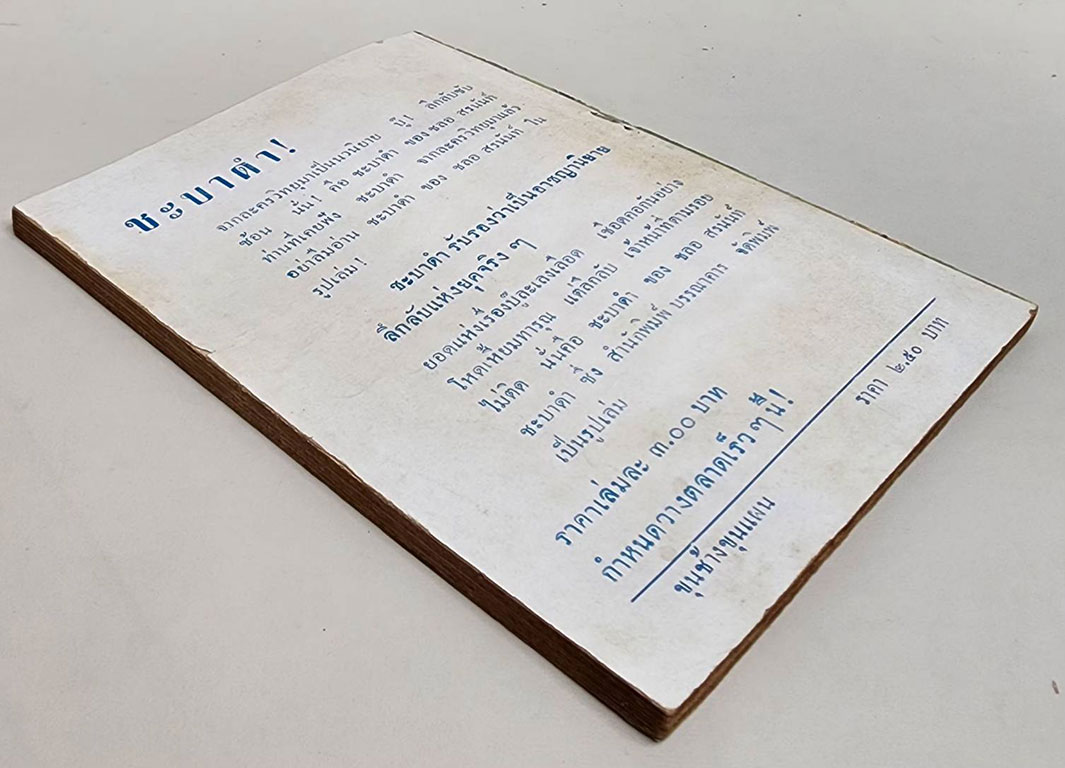 ชะบาดำ!
จากละครวิทยุมาเป็นนวนิยาย บู๊! ลึกลับซับ
ซ้อน นั่น! คือ ชะบาดำ ของ ชลอ สรนันท์
ท่านที่เคยฟัง ชะบาดำ จากละครวิทยุมาแล้ว
อย่าลืมอ่าน ชะบาดำ ของ ชลอ สรนันท์ ใน
รูปเล่ม!
ชะบาดำ รับรองว่าเป็นอาชญวนิยาย
ลึกลับแห่งยุคจริง ๆ
ยอดแห่งเรื่องบู๊ละเลงเลือด เชือดคอกันอย่าง
โหดเหี้ยมทารุณ แต่ลึกลับ เจ้าหน้าที่ตามรอย
ไม่ติด นั่นคือ ชะบาดำ ของ ชลอ สรนันท์
ชะบาดำ ซึ่ง สำนักพิมพ์ บรรณาคาร จัดพิมพ์
เป็นรูปเล่ม
ราคาเล่มละ ๓.๐๐ บาท
กำหนดวางตลาดเร็ว ๆ นี้!
ขุนช้างขุนแผน ราคา ๒.๕๐ บาท